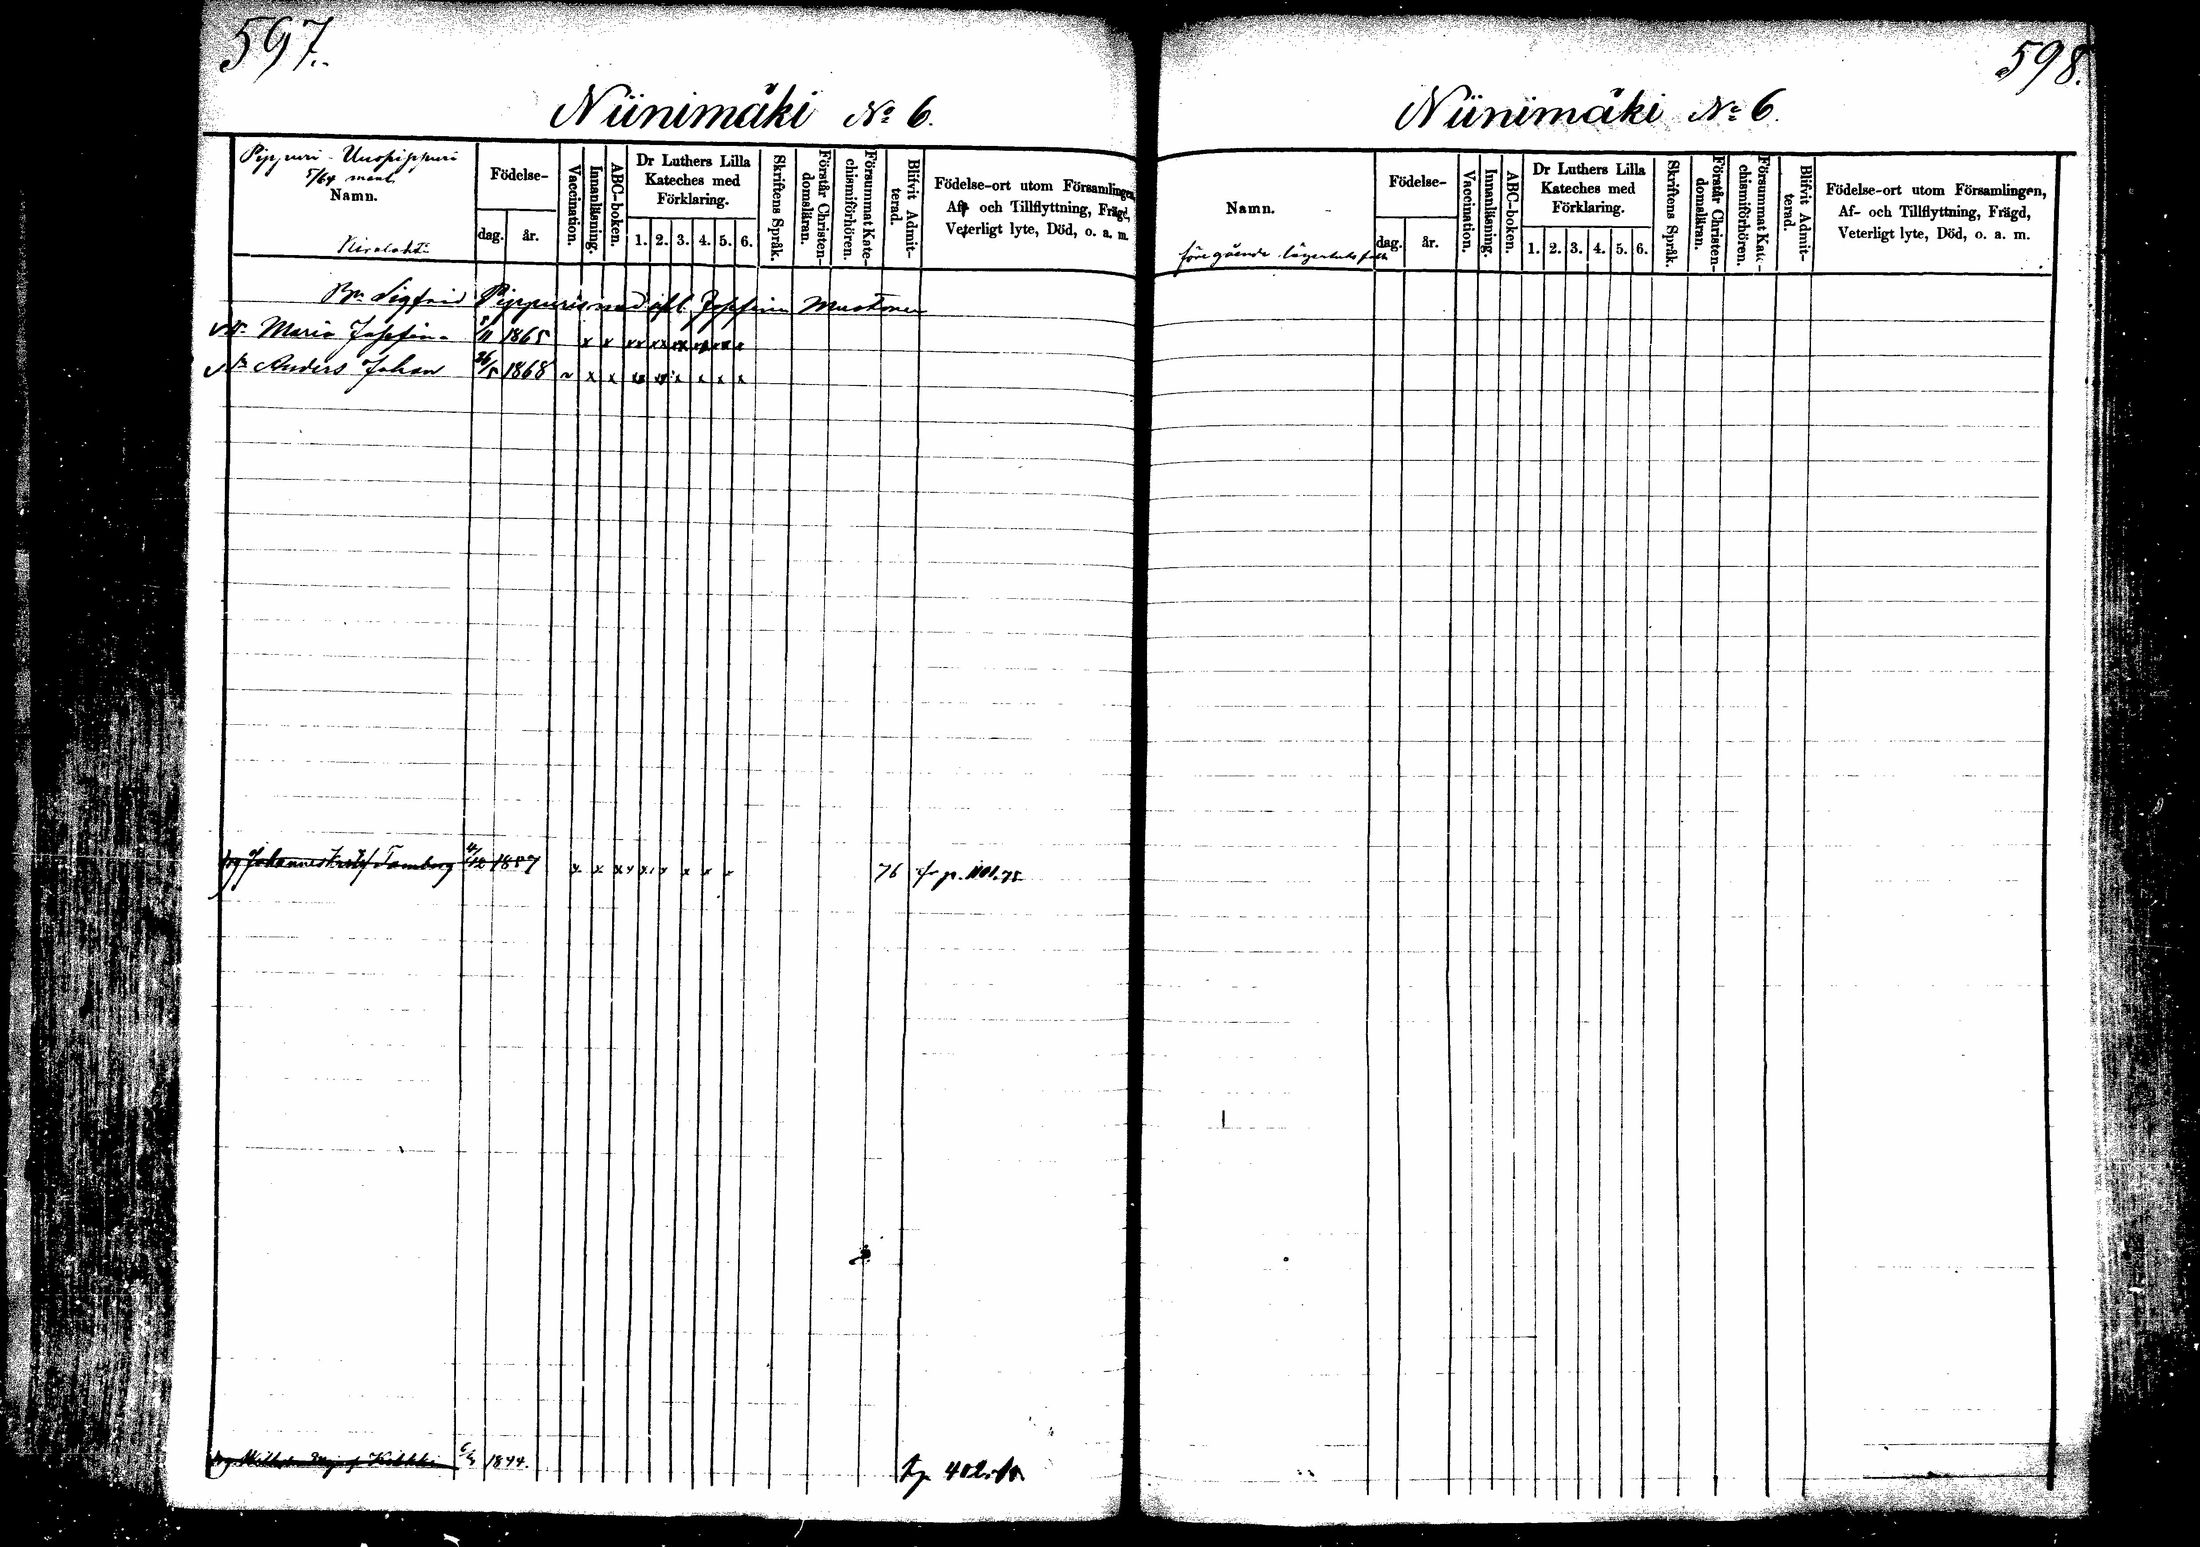 597.
Niinimäki No 6.
Pippuri - Uusipippuri
5/64 mant.
Namn.
Födelse-
dag.
år.
Vaccination.
Innanläsning.
ABC-boken.
Dr Luthers Lilla
Kateches med
Förklaring.
1. 2. 3. 4. 5. 6.
Skriftens Språk.
Förstår Christen-
domsläran.
Försummat Kate-
chismiförhören.
Blifvit Admit-
terad.
Födelse-ort utom Församlingen,
Af- och Tillflyttning, Frägd,
Veterligt lyte, Död, o. a. m.
Bn Sigfrid Pippuris med Josefina Mustonen
Maria Josefina 5/11 1865 x x xx xx xx xx xx x
Anders Johan 26/5 1868 v x x xx xx x x x x
Johannes Tamberg 4/12 1857 x x x x x x x x x 76 fr p. 1101. 75
1844.
402.
598.
Niinimäki No 6.
Namn.
föregående lägenhets folk
Födelse-
dag.
år.
Vaccination.
Innanläsning.
ABC-boken.
Dr Luthers Lilla
Kateches med
Förklaring.
1. 2. 3. 4. 5. 6.
Skriftens Språk.
Förstår Christen-
domsläran.
Försummat Kate-
chismiförhören.
Blifvit Admit-
terad.
Födelse-ort utom Församlingen,
Af- och Tillflyttning, Frägd,
Veterligt lyte, Död, o. a. m.